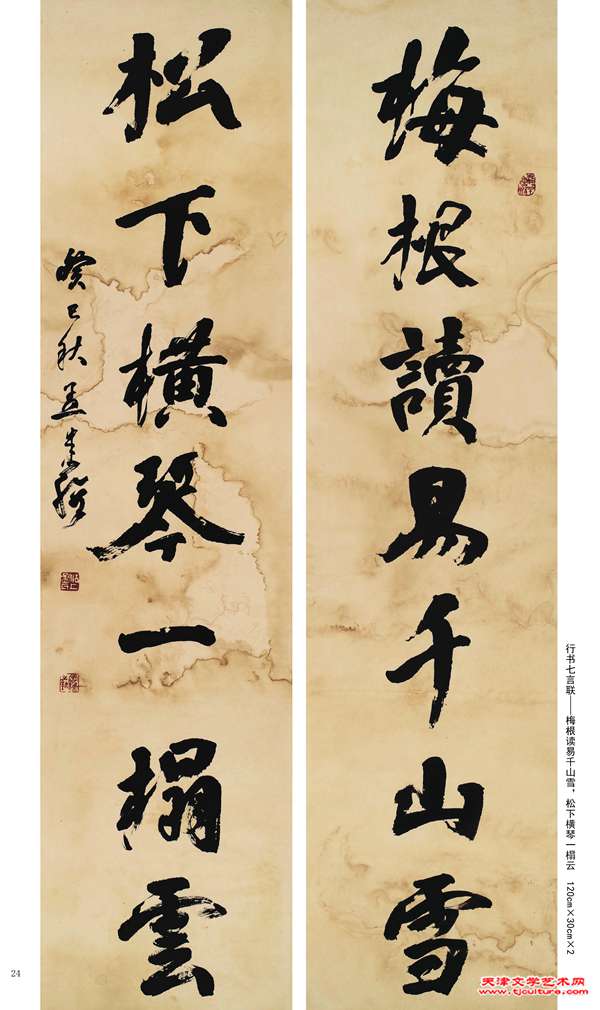 梅根讀易千山雪
松下横琴一榻雲
癸巳秋孟
行书七言联——梅根读易千山雪，松下横琴一榻云 120cm×30cm×2
24
天津文学艺术网
www.tjculture.com